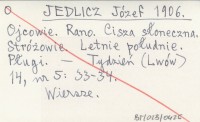 O JEDLICZ Józef 1906.
Ojcowie. Rano. Cisza słoneczna.
Stróżowie. Letnie południe.
Pługi. — Tydzień (Lwów)
14, nr 5: 33-34.
Wiersze.